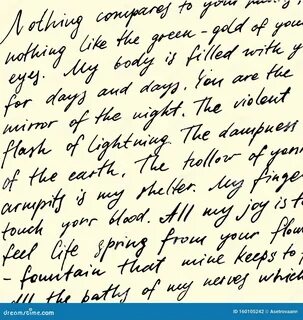 Nothing compares to your
nothing like the green-gold of your
eyes. My body is filled with y
for days and days. You are the
mirror of the night. The violent
flash of lightning. The dampness
of the earth. The hollow of your
armpits is my shelter. My finge
touch your blood. All my joy is t
feel life spring from your flow
-fountain that mine keeps to
all the paths of my nerves which
dreamstime.com
ID 160105242 © Asetrovaanr